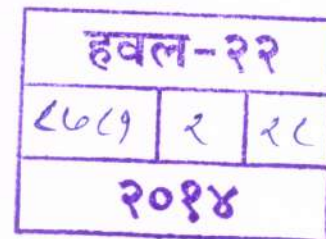 हवल-२२
८७८१ २ २८
२०१४